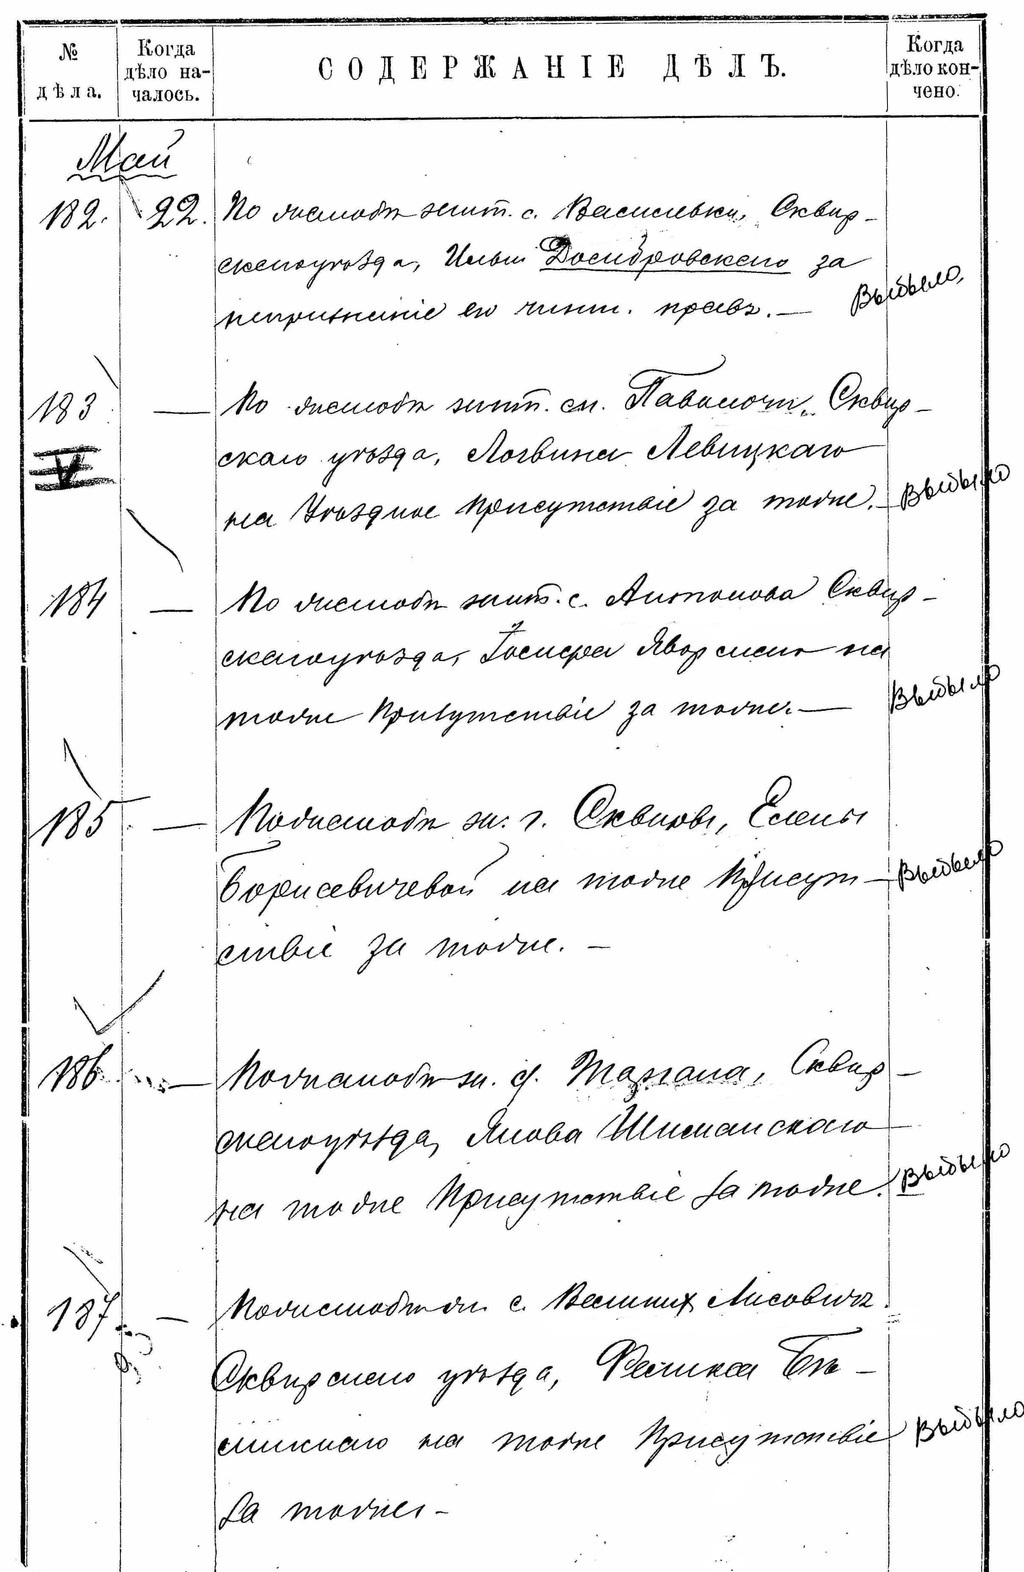 № дѣла.
Когда дѣло началось.
СОДЕРЖАНІЕ ДѢЛЪ.
Когда дѣло кончено.
Май
182. 22. По жалобѣ жит. с. Васильевки, Сквир-
скаго уѣзда, Ильи за
непризнаніе ею чинш. правъ. — Выбыло,
183 — По жалобѣ жит. см. Паволочи, Сквир-
скаго уѣзда, Логвина Левицкаго
на Уѣздное Присутствіе за тоже. — Выбыло
V
184 — По жалобѣ жит. с. Антонова Сквир-
скаго уѣзда, Яворскаго на
тоже Присутствіе за тоже. — Выбыло
185 — По жалобѣ ж. г. Сквиры, Елены
Борисевичевой на тоже Присут-
ствіе за тоже. — Выбыло
186 — По жалобѣ ж. д. Таргана, Сквир-
скаго уѣзда, Якова Шиманскаго
на тоже Присутствіе за тоже. Выбыло
187 — По жалобѣ ж. с. Великих Лисовичъ
Сквирскаго уѣзда, Феликса Бѣ-
на тоже Присутствіе Выбыло
за тоже. —